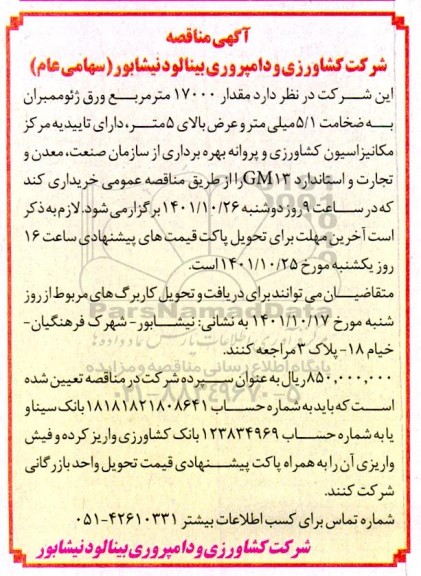 آگهی مناقصه
شرکت کشاورزی و دامپروری بینالود نیشابور (سهامی عام)
این شرکت در نظر دارد مقدار ۱۷۰۰۰ مترمربع ورق ژئوممبران
به ضخامت ۵/۱ میلی متر و عرض بالای ۵متر، دارای تاییدیه مرکز
مکانیزاسیون کشاورزی و پروانه بهره برداری از سازمان صنعت، معدن و
تجارت و استاندارد GM۱۳ را از طریق مناقصه عمومی خریداری کند
که در ساعت ۹ روز دوشنبه ۱۴۰۱/۱۰/۲۶ برگزار می شود. لازم به ذکر
است آخرین مهلت برای تحویل پاکت قیمت های پیشنهادی ساعت ۱۶
روز یکشنبه مورخ ۱۴۰۱/۱۰/۲۵ است.
متقاضیان می توانند برای دریافت و تحویل کاربرگ های مربوط از روز
شنبه مورخ ۱۴۰۱/۱۰/۱۷ به نشانی: نیشابور- شهرک فرهنگیان-
خیام ۱۸- پلاک ۳ مراجعه کنند.
۸۵۰,۰۰۰,۰۰۰ ریال به عنوان سپرده شرکت در مناقصه تعیین شده
است که باید به شماره حساب ۱۸۱۸۱۸۲۱۸۰۸۶۴۱ بانک سینا و
یا به شماره حساب ۱۲۳۸۳۴۹۶۹ بانک کشاورزی واریز کرده و فیش
واریزی آن را به همراه پاکت پیشنهادی قیمت تحویل واحد بازرگانی
شرکت کنند.
شماره تماس برای کسب اطلاعات بیشتر ۴۲۶۱۰۳۳۱-۰۵۱
شرکت کشاورزی و دامپروری بینالود نیشابور
ParsNamadData
پایگاه اطلاع رسانی مناقصه و مزایده
۰۲۱-۸۸۳۴۹۶۷۰-۵